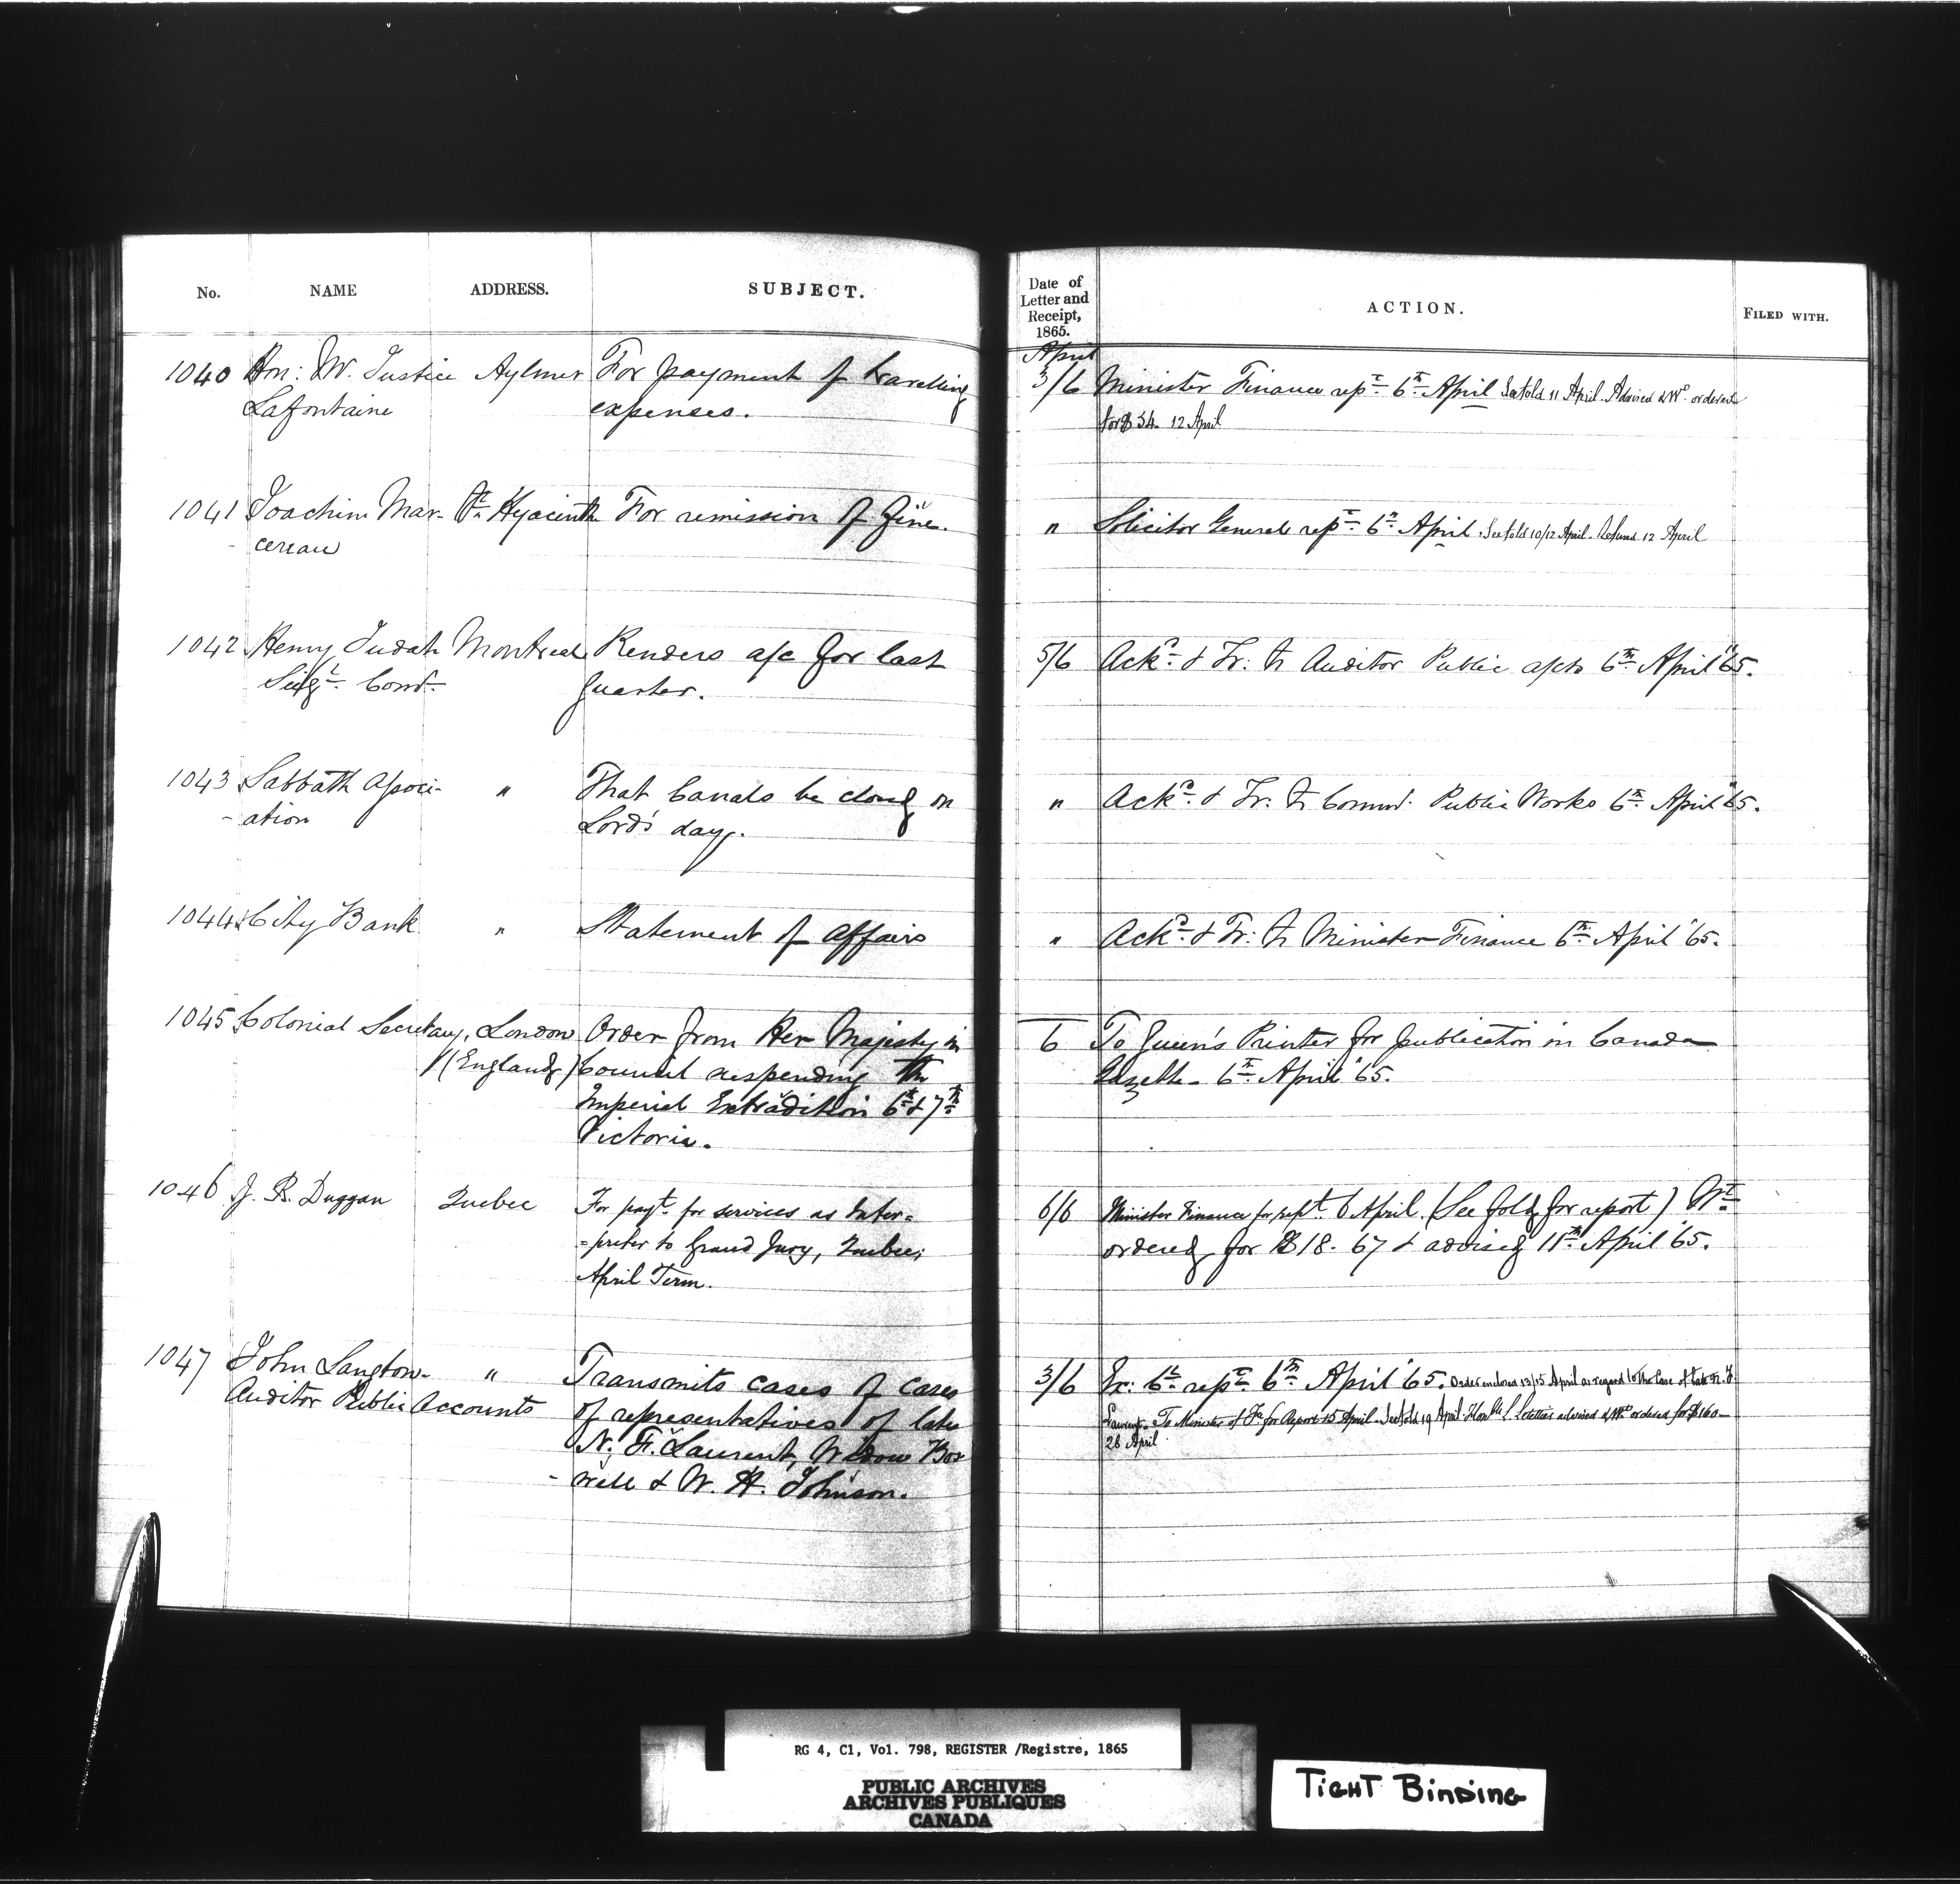 No. NAME ADDRESS. SUBJECT.
Date of Letter and Receipt, 1865. ACTION. FILED WITH.
April
1040 Hon: Mr. Justice Aylmer For payment of travelling
Lafontaine expenses.
3/6 Minister Finance rept. 6th April See fold 11 April. Advised & Wt. ordered
for $34. 12 April
1041 Joachim Mar- St. Hyacinth For remission of fine.
- cereau
" Solicitor General rept. 6th April. See fold 10/12 April. Refused 12 April
1042 Henry Judah Montreal Renders a/c for last
Seigl. Comr. quarter.
5/6 Ackd. & Tr: to Auditor Public a/cts 6th April '65.
1043 Sabbath Associ- " That Canals be closed on
- ation Lord's day.
" Ackd. & Tr: to Commr. Public Works 6th April '65.
1044 City Bank " Statement of affairs
" Ackd. & Tr: to Minister Finance 6th April '65.
1045 Colonial Secretary, London Order from Her Majesty in
(England) Council suspending the
Imperial Extradition 6th & 7th
Victoria.
6 To Queen's Printer for publication in Canada
Gazette. 6th April '65.
1046 J. R. Duggan Quebec For payt. for services as Inter=
=preter to Grand Jury, Quebec,
April Term.
6/6 Minister Finance for rept. 6 April. (See fold for report) Wt.
ordered for $18.67 & advised 11th April '65.
1047 John Langton- " Transmits cases of cases
Auditor Public Accounts of representatives of late
N. F. Laurent, Widow Box
- well & W. H. Johnson.
3/6 Ex: Cl. rept. 6th April '65. Order enclosed 13/15 April as regard to the Case of late N. F.
Laurent. To Minister of Fce. for Report 15 April. See fold 19 April. advised & Wt. ordered for $160-
26 April
RG 4, C1, Vol. 798, REGISTER /Registre, 1865
PUBLIC ARCHIVES
ARCHIVES PUBLIQUES
CANADA
TIGHT BINDING